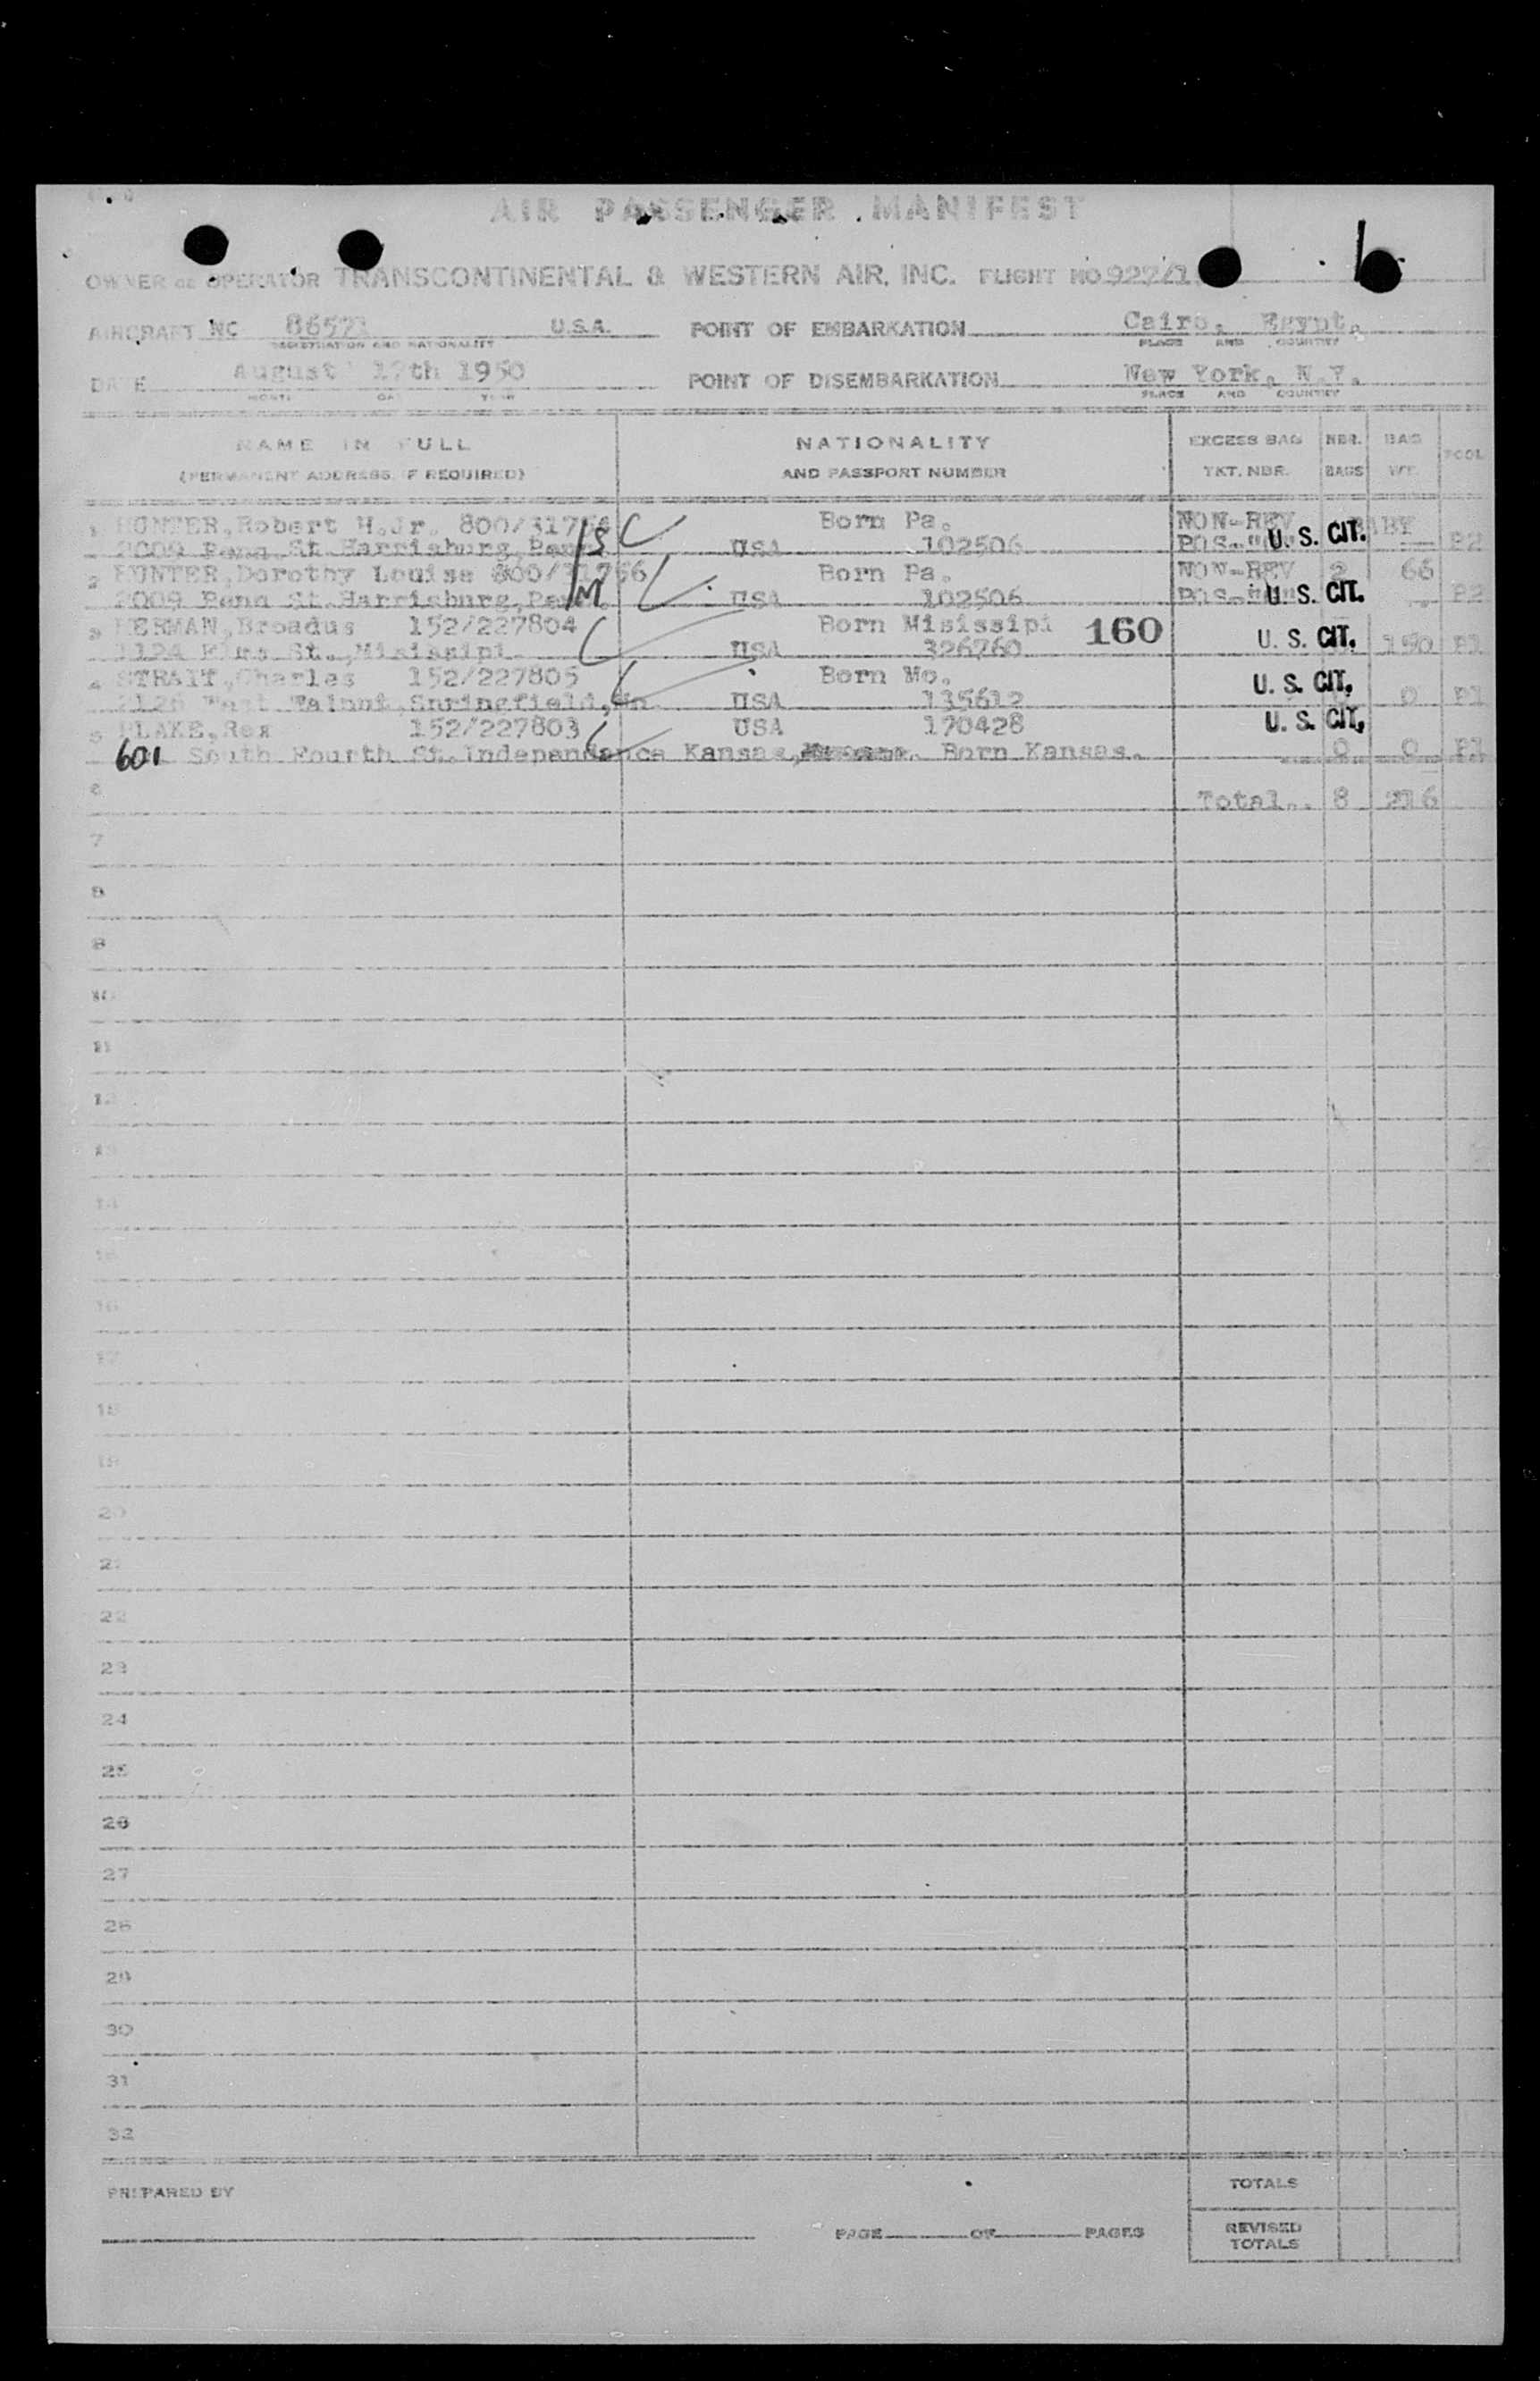 AIR PASSENGER MANIFEST
6
OWNER OR OPERATOR TRANSCONTINENTAL & WESTERN AIR, INC. FLIGHT NO 927/1
AIRCRAFT NC 86571 U.S.A. POINT OF EMBARKATION Cairo, Egypt.
REGISTRATION AND NATIONALITY PLACE AND COUNTRY
DATE August 17th 1950 POINT OF DISEMBARKATION New York, N.Y.
MONTH DAY YEAR PLACE AND COUNTRY
NAME IN FULL NATIONALITY EXCESS BAG NBR. BAG POOL
(PERMANENT ADDRESS IF REQUIRED) AND PASSPORT NUMBER TKT. NBR. BAGS WT.
1 HUNTER, Robert H.Jr. 800/31754 Born Pa. NON-REV BABY
2009 Penn St Harrisburg, Penn. USA 102506 POS. U. S. CIT. P2
2 HUNTER, Dorothy Louise 800/31756 Born Pa. NON-REV 2 66
2009 Penn St. Harrisburg, Penn. M USA 102506 POS. U. S. CIT. P2
3 HERMAN, Broadus 152/227804 Born Misissipi 160
1124 Elms St., Misissipi USA 326760 U. S. CIT. 150 P1
4 STRAIT, Charles 152/227805 Born Mo. U. S. CIT.
2126 East Walnut, Springfield, Mo. USA 135612 0 P1
5 BLAKE, Rex 152/227803 USA 170428 U. S. CIT.
601 South Fourth St. Independance Kansas, Born Kansas. 0 0 P1
6 Total.. 8 216
7
8
9
10
11
12
13
14
15
16
17
18
19
20
21
22
23
24
25
26
27
28
29
30
31
32
PREPARED BY TOTALS
PAGE OF PAGES REVISED
TOTALS